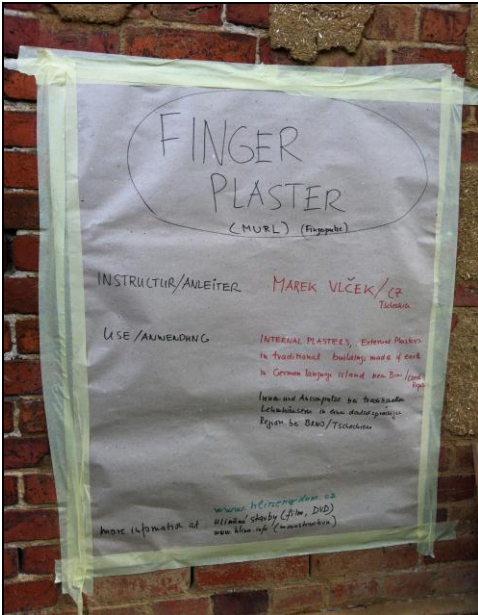 FINGER
PLASTER
(MURL) (Fingerputz)
INSTRUCTUR/ANLEITER MAREK VLČEK/CZ
Tschechien
USE/ANWENDUNG INTERNAL PLASTERS, External Plasters
in traditional buildings made of earth
in German language island near Brno/
Innen und Aussenputze bei traditionellen
Lehmhäusern in einer deutschsprachigen
Region bei BRNO/Tschechien
www.hlinenydum.cz
more information at hliněné stavby (film, DVD)